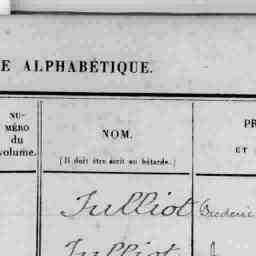 E ALPHABÉTIQUE.
NU-
MÉRO
du
volume.
NOM.
(Il doit être écrit en bâtarde.)
PR
ET
Julliot Frederic
Julliot J